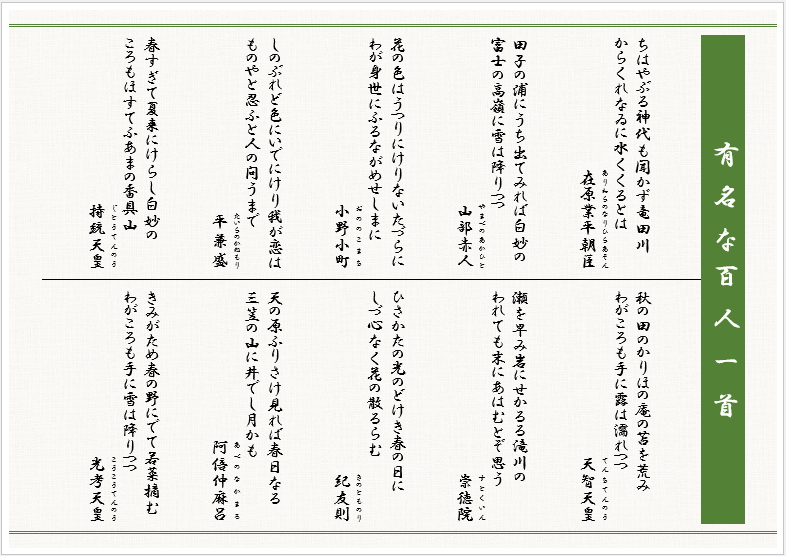 有名な百人一首
ちはやぶる神代も聞かず竜田川
からくれなゐに水くくるとは
ありわらのなりひらあそん
在原業平朝臣
田子の浦にうち出てみれば白妙の
富士の高嶺に雪は降りつつ
やまべのあかひと
山部赤人
花の色はうつりにけりないたづらに
わが身世にふるながめせしまに
おののこまち
小野小町
しのぶれど色にいでにけり我が恋は
ものやと忍ふと人の問うまで
たいらのかねもり
平兼盛
春すぎて夏来にけらし白妙の
ころもほすてふあまの香具山
じとうてんのう
持統天皇
秋の田のかりほの庵の苫を荒み
わがころも手に露は濡れつつ
てんちてんのう
天智天皇
瀬を早み岩にせかるる滝川の
われても末にあはむとぞ思う
すとくいん
崇徳院
ひさかたの光のどけき春の日に
しづ心なく花の散るらむ
きのとものり
紀友則
天の原ふりさけ見れば春日なる
三笠の山に井でし月かも
あべのなかまろ
阿倍仲麻呂
きみがため春の野にでて若菜摘む
わがころも手に雪は降りつつ
こうこうてんのう
光考天皇